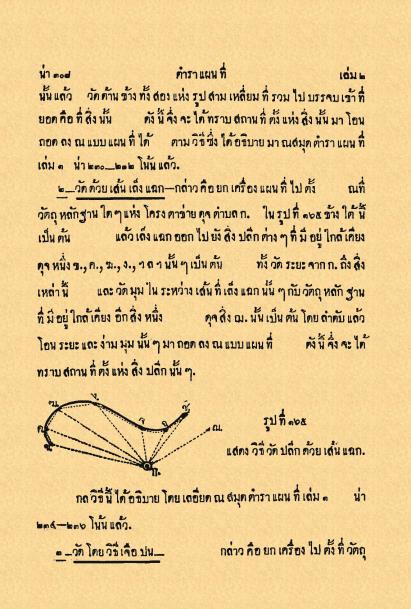 น่า ๓๐๘ ตำรา แผน ที่ เล่ม ๒
นั้น แล้ว วัด ด้าน ข้าง ทั้ง สอง แห่ง รูป สาม เหลี่ยม ที่ รวม ไป บรรจบ เข้า ที่
ยอด คือ ที่ สิ่ง นั้น ดัง นี้ จึ่ง จะ ได้ ทราบ สถาน ที่ ตั้ง แห่ง สิ่ง นั้น มา โอน
ถอด ลง ณ แบบ แผน ที่ ได้ ตาม วิธี ซึ่ง ได้ อธิบาย มา ณ สมุด ตำรา แผน ที่
เล่ม ๑ น่า ๒๓๐—๒๓๒ โน้น แล้ว.
๒_วัด ด้วย เส้น เล็ง แฉก—กล่าว คือ ยก เครื่อง แผน ที่ ไป ตั้ง ณ ที่
วัตถุ หลัก ฐาน ใด ๆ แห่ง โครง ตาข่าย ดุจ ตำบล ก. ใน รูป ที่ ๑๖๕ ข้าง ใต้ นี้
เป็น ต้น แล้ว เล็ง แฉก ออก ไป ยัง สิ่ง ปลีก ต่าง ๆ ที่ มี อยู่ ใกล้ เคียง
ดุจ หนึ่ง ข., ค., ฆ., ง., ฯ ล ฯ นั้น ๆ เป็น ต้น ทั้ง วัด ระยะ จาก ก. ถึง สิ่ง
เหล่า นี้ และ วัด มุม ใน ระหว่าง เส้น ที่ เล็ง แฉก นั้น ๆ กับ วัตถุ หลัก ฐาน
ที่ มี อยู่ ใกล้ เคียง อีก สิ่ง หนึ่ง ดุจ สิ่ง ฌ. นั้น เป็น ต้น โดย ลำดับ แล้ว
โอน ระยะ และ ง่าม มุม นั้น ๆ มา ถอด ลง ณ แบบ แผน ที่ ดัง นี้ จึ่ง จะ ได้
ทราบ สถาน ที่ ตั้ง แห่ง สิ่ง ปลีก นั้น ๆ.
ฆ. ง. จ. ฉ. ช.
ค. ข. ก. ฌ.
รูป ที่ ๑๖๕
แสดง วิธี วัด ปลีก ด้วย เส้น แฉก.
กล วิธี นี้ ได้ อธิบาย โดย เลอียด ณ สมุด ตำรา แผน ที่ เล่ม ๑ น่า
๒๓๔—๒๓๖ โน้น แล้ว.
๓_วัด โดย วิธี เจือ ปน— กล่าว คือ ยก เครื่อง ไป ตั้ง ที่ วัตถุ